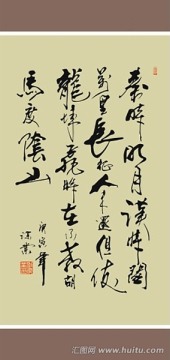 秦時明月漢時關
萬里長征人未還但使
龍城飛將在不教胡
馬度陰山
庚寅年
汇图网 www.huitu.com